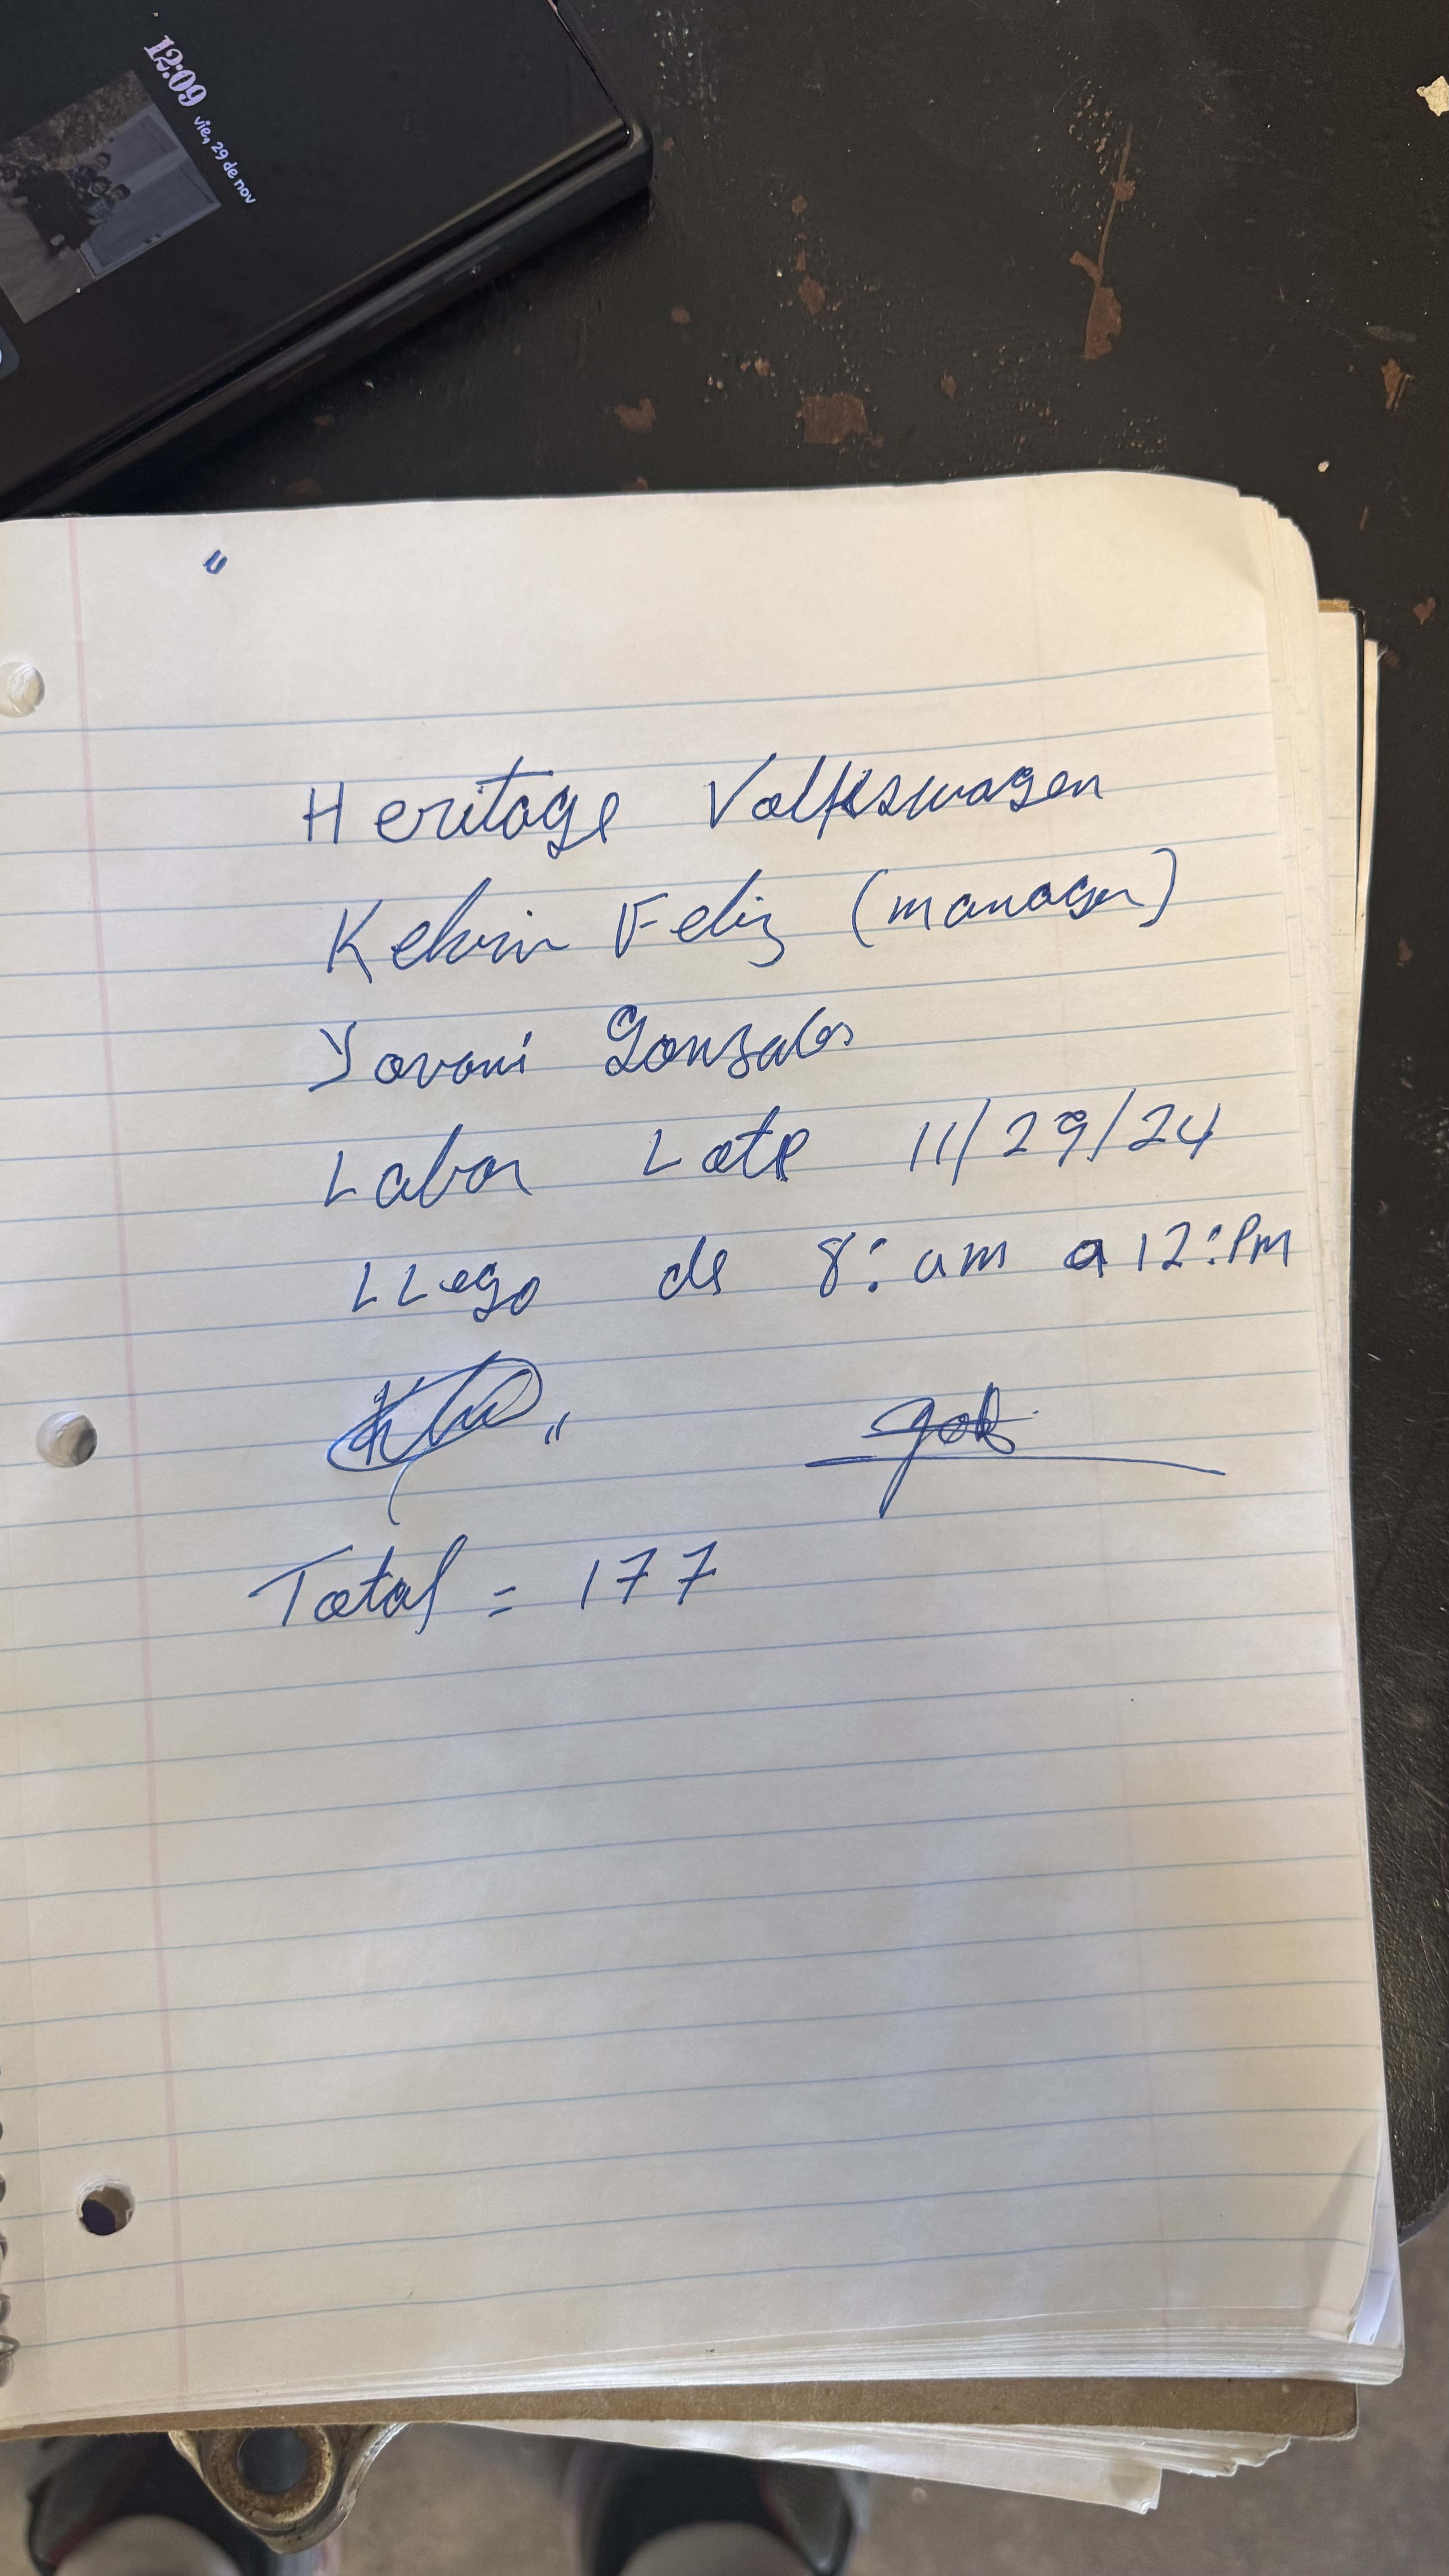 12:09
vie, 29 de nov
Heritage Volkswagen
Kelvin Feliz (manager)
Yovani Gonzales
Labor Late 11/29/24
LLego de 8: am a 12: PM
Total = 177